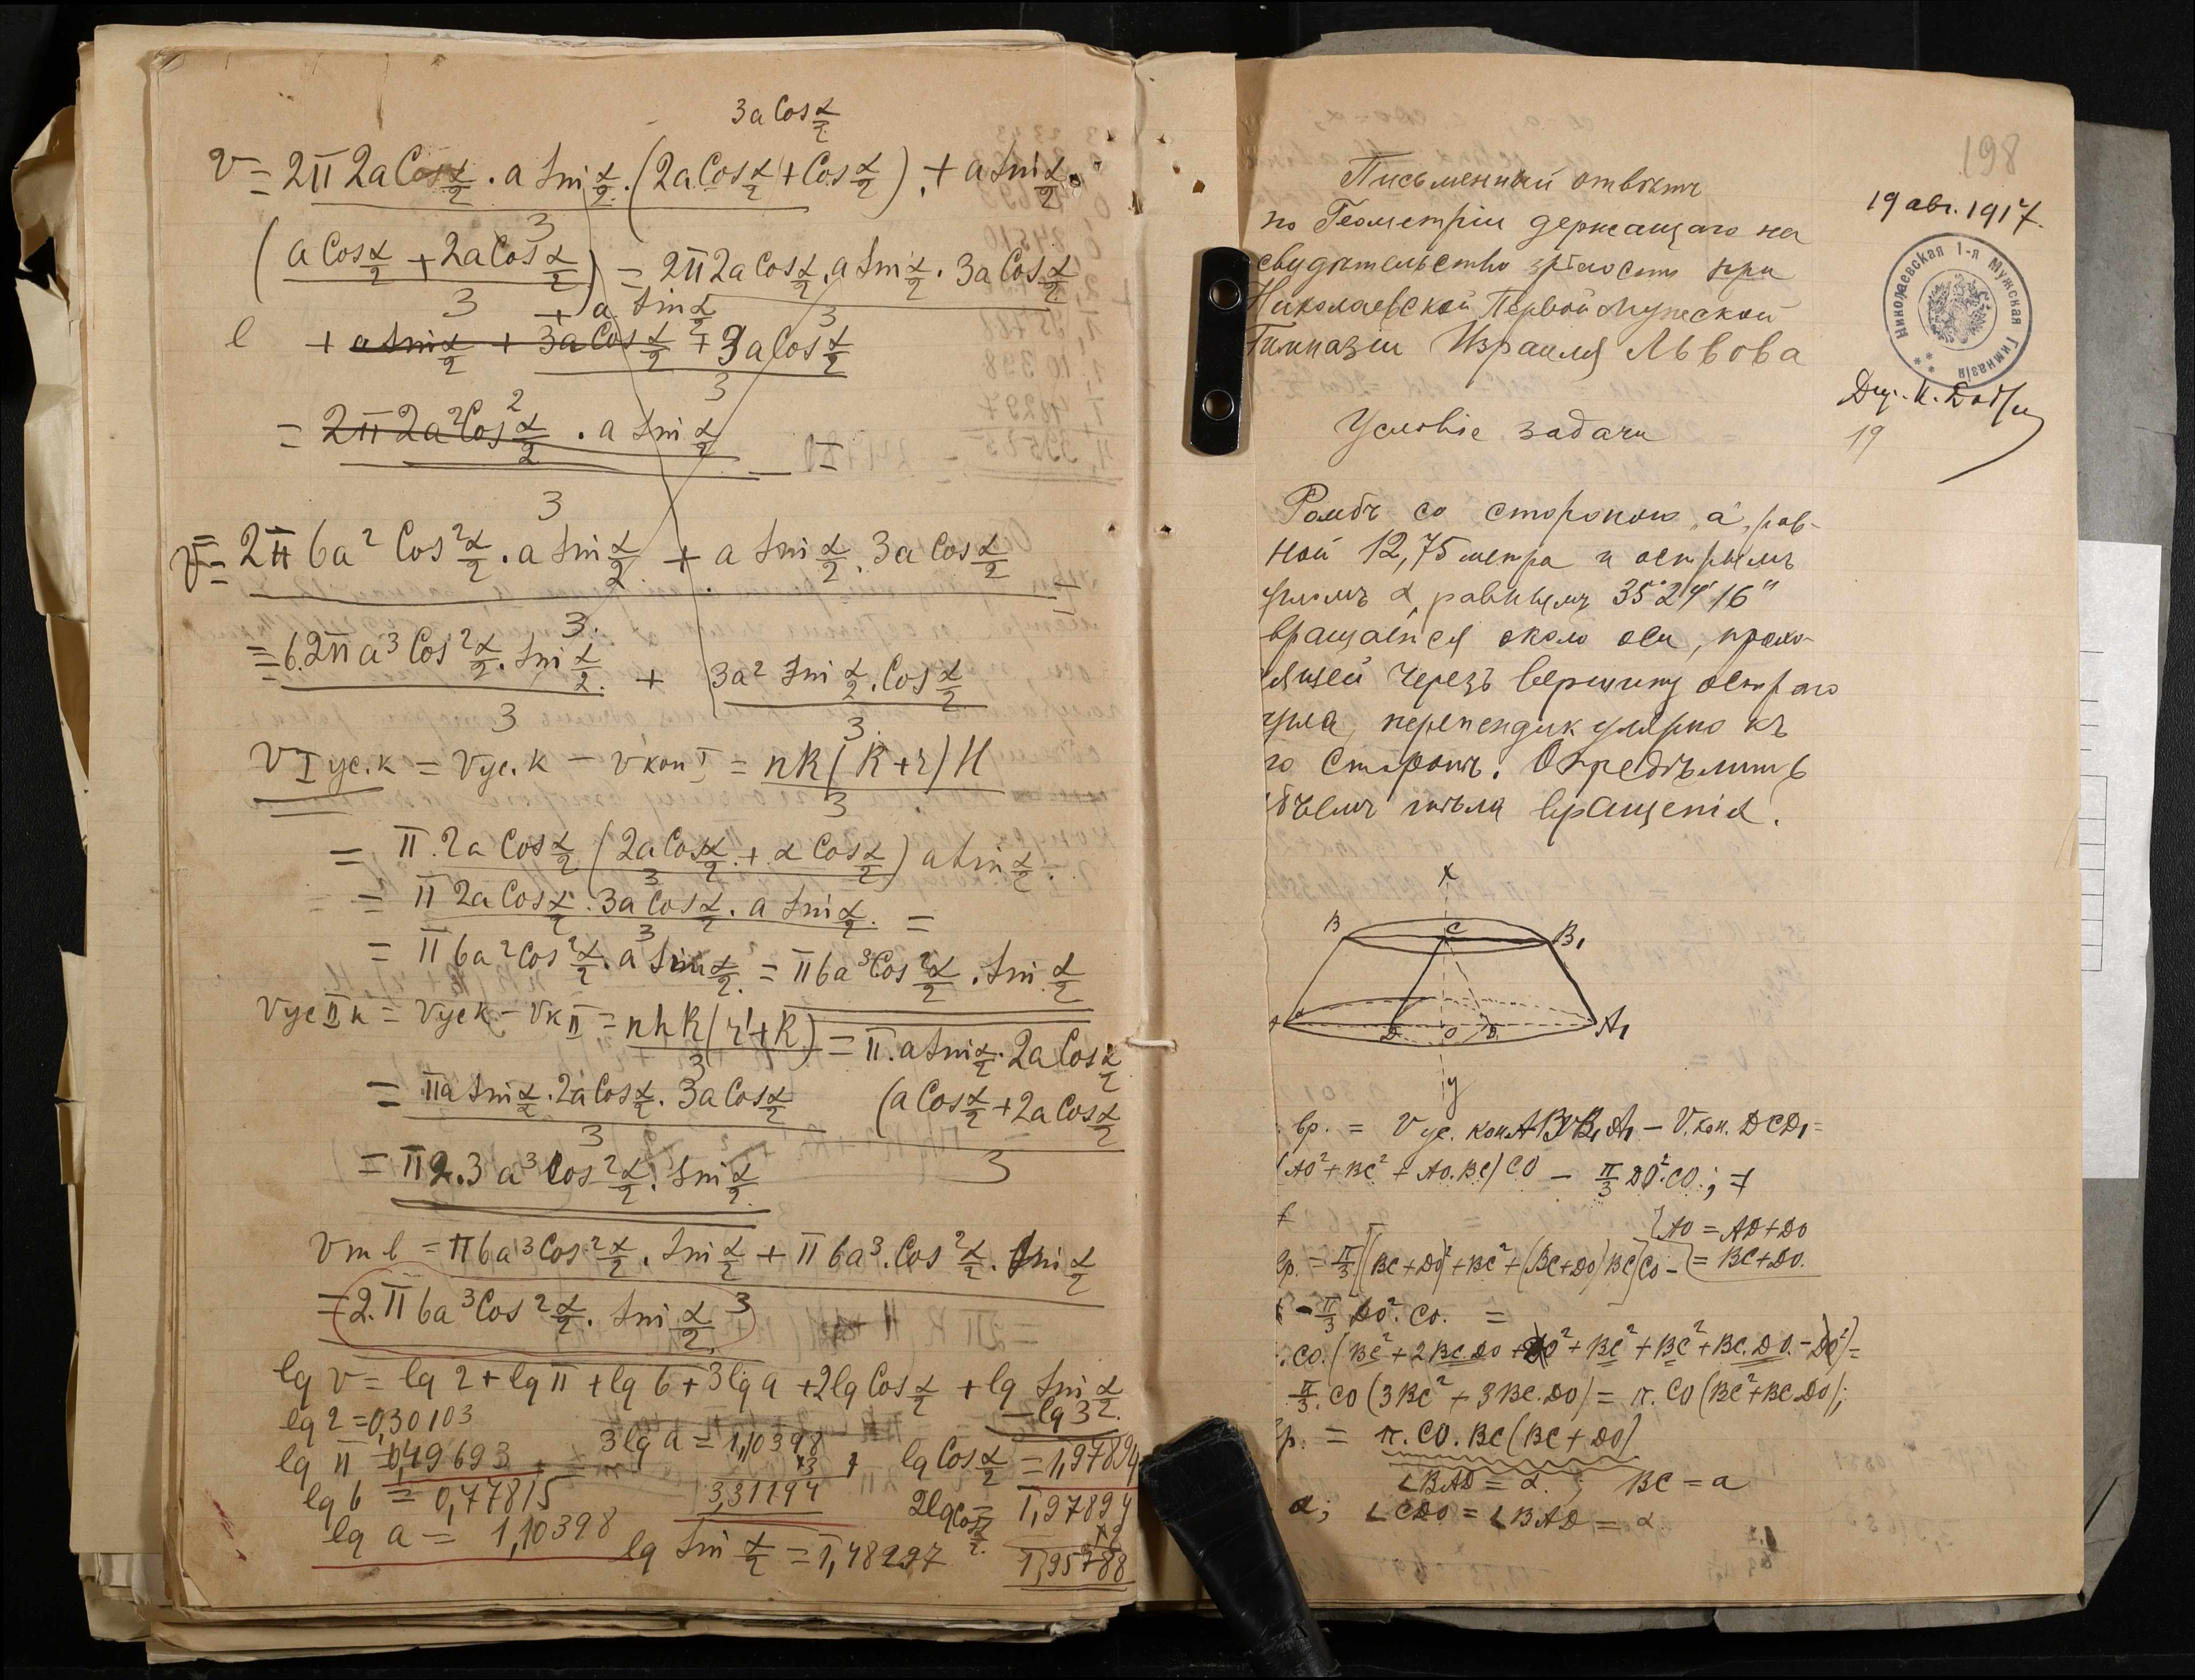 3a Cos α/2
V = 2π 2a Cos α/2 · a Sin α/2 · (2a Cos α/2 + Cos α/2) + a Sin α/2 ·
3
(a Cos α/2 + 2a Cos α/2) = 2π 2a Cos α/2 · a Sin α/2 · 3a Cos α/2
3 + a Sin α/2 3
+ a Sin α/2 + 3a Cos α/2 + 3a Cos α/2
3
= 2π 2a² Cos² α/2 · a Sin α/2
3
V = 2π 6a² Cos² α/2 · a Sin α/2 + a Sin α/2 · 3a Cos α/2
3.
= 6.2π a³ Cos² α/2 · Sin α/2 + 3a² Sin α/2 · Cos α/2
3 3.
V I ус.к = Vус.к − Vкон I = πR(R+r)H
3
= π.2a Cos α/2 (2a Cos α/2 + α Cos α/2) a Sin α/2
3
= π 2a Cos α/2 · 3a Cos α/2 · a Sin α/2 =
3
= π 6a² Cos² α/2 · a Sin α/2 = π 6a³ Cos² α/2 · Sin α/2
Vус II к = Vус к − Vк II = πhR(r'+R) = π.a Sin α/2 · 2a Cos α/2
3
= πa Sin α/2 · 2a Cos α/2 · 3a Cos α/2 (a Cos α/2 + 2a Cos α/2
3 3
= π2.3 a³ Cos² α/2 · Sin α/2
V т в = π6a³ Cos² α/2 · Sin α/2 + π 6a³ · Cos² α/2 · Sin α/2
= 2.π 6a³ Cos² α/2 · Sin α/2 3
lg V = lg 2 + lg π + lg 6 + 3 lg a + 2 lg Cos α/2 + lg Sin α/2
− lg 3
lg 2 = 0,30103
lg π = 0,49693
3 lg a = 1,10398
×3
3,31194
lg Cos α/2 = 1,97894
lg 6 = 0,77815
2 lg Cos α/2 = 1,97894
×2
1,95788
lg a = 1,10398
lg Sin α/2 = 1,48297
198
19 авг. 1917.
Письменный отвѣтъ
по Геометріи держащаго на
свидѣтельство зрѣлости при
Николаевской Первой Мужской
Гимназіи Израиля Львова
Николаевская 1-я Мужская Гимназія
19
Условіе задачи
Ромбъ со стороною „а", рав-
ной 12,75 метра и острымъ
угломъ α, равнымъ 35°24'16"
вращается около оси, прохо-
дящей черезъ вершину острого
угла, перпендикулярно къ
го сторонѣ. Опредѣлить
бъемъ тѣла вращенія.
x
B C B₁
D O D₁ A₁
y
вр. = V ус. кон. ABB₁A₁ − V. кон. DCD₁ =
(AO² + BC² + AO.BC) CO − π/3 DO².CO; +
{AO = AD+DO
= BC+DO.
р. = π/3 [(BC+DO)² + BC² + (BC+DO)BC] CO −
− π/3 DO². CO. =
.CO.(BC² + 2BC.DO + DO² + BC² + BC² + BC.DO. − DO²) =
π/3 .CO (3BC² + 3BC.DO) = π.CO (BC² + BC.DO);
р. = π.CO.BC(BC+DO)
∠BAD = α. ; BC = a
α; ∠CDO = ∠BAD = α